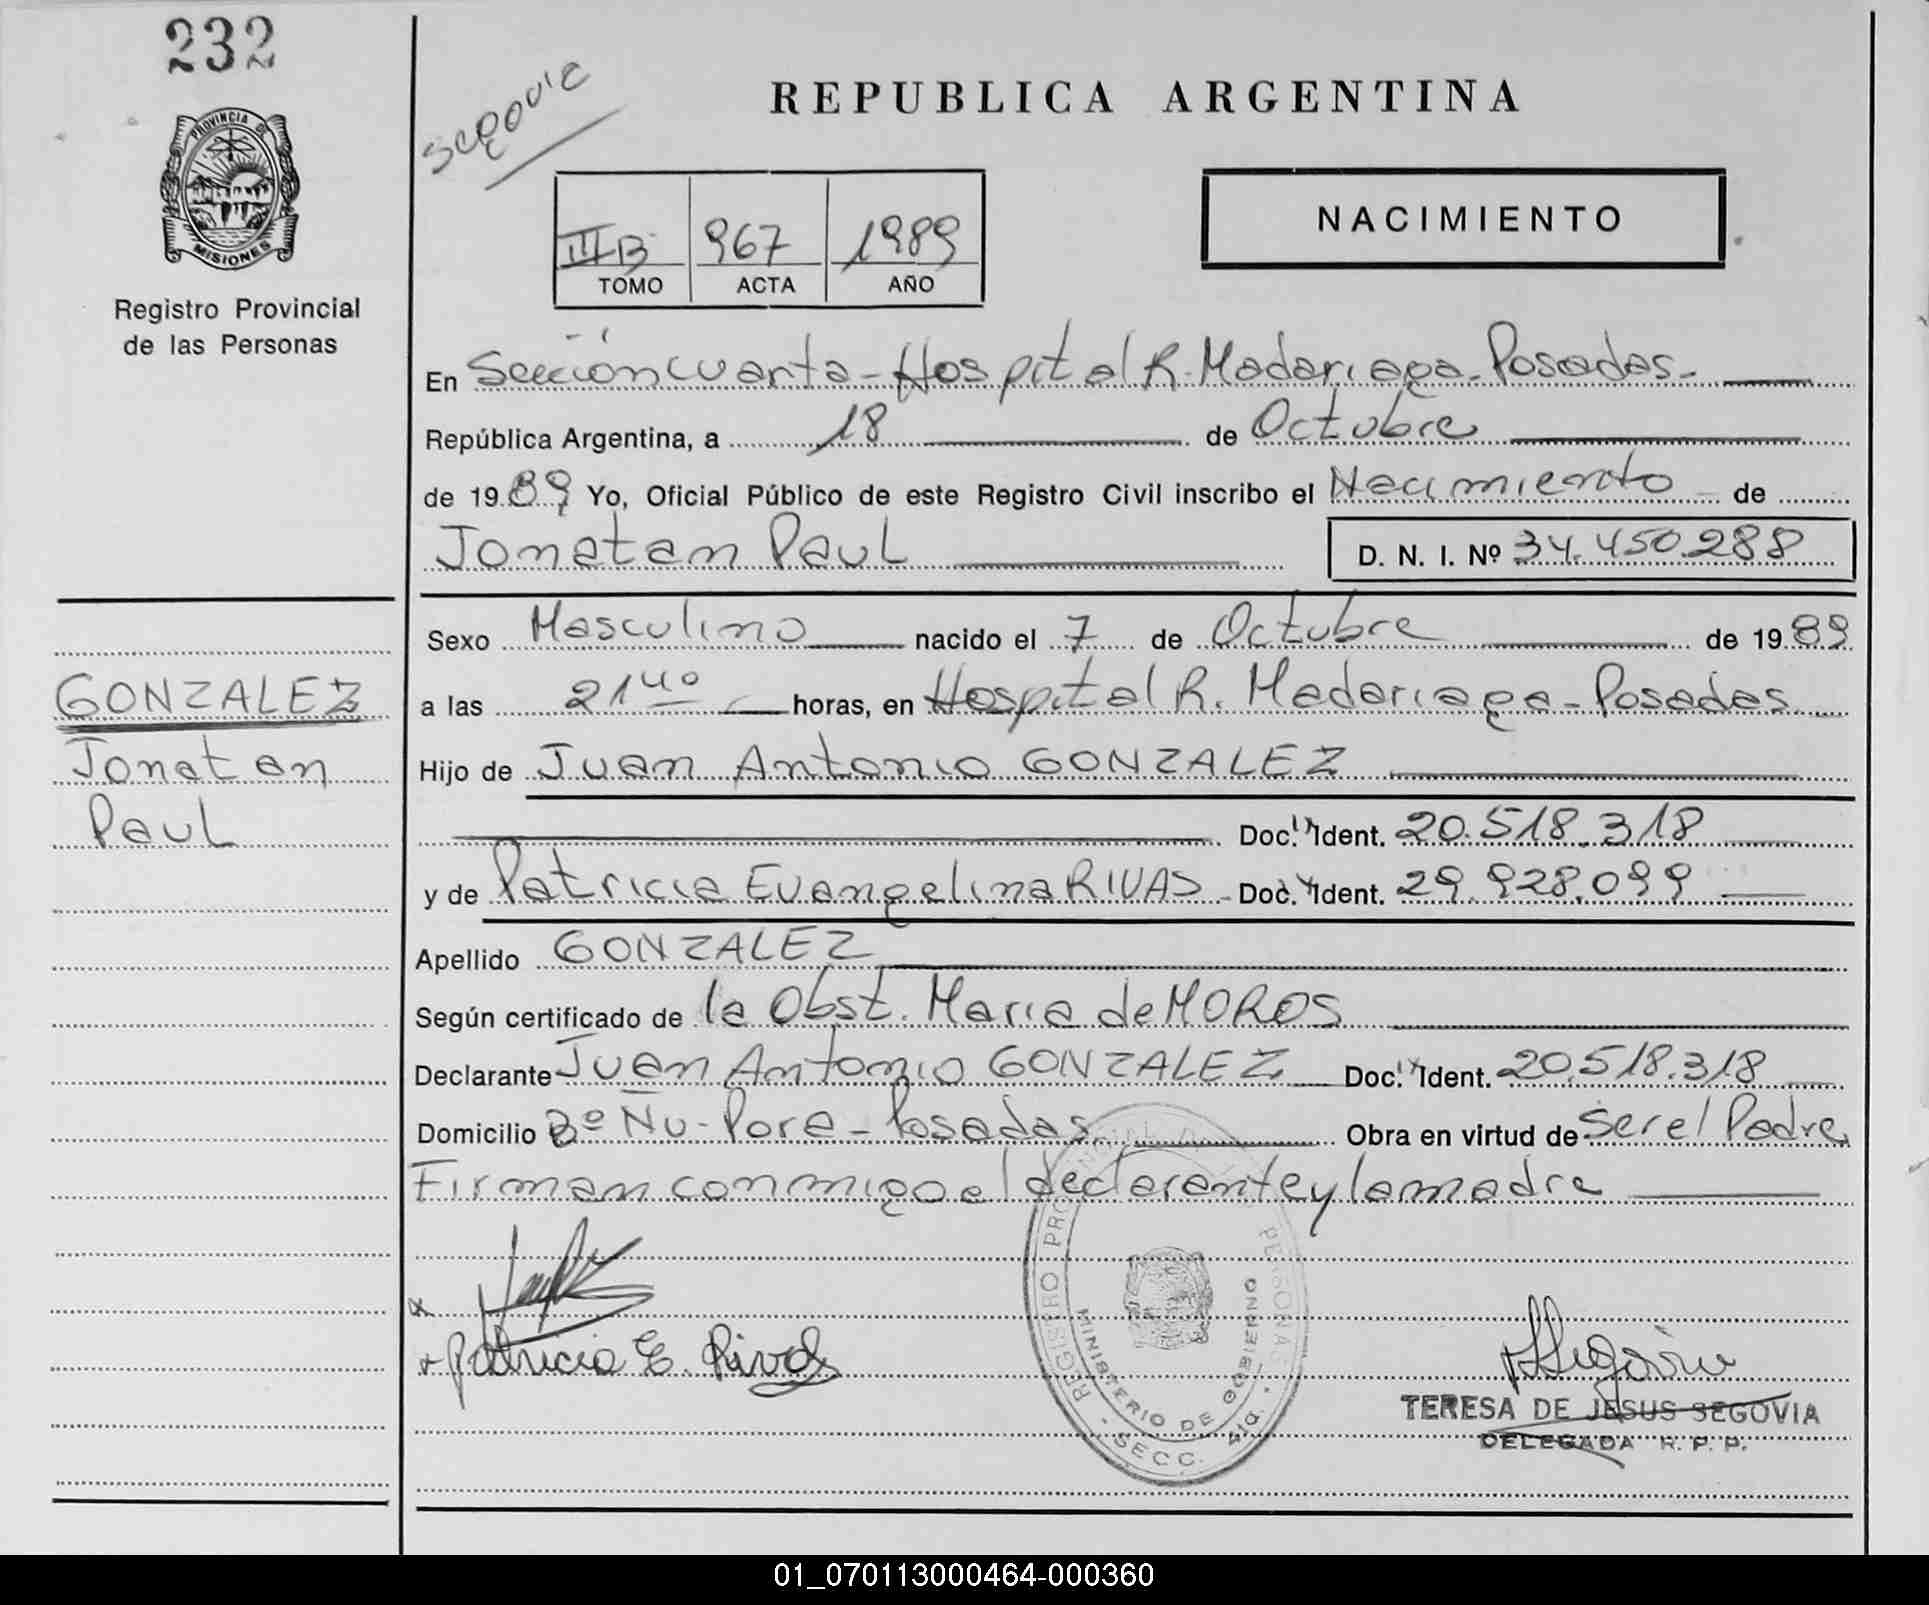 232
PROVINCIA DE
MISIONES
Registro Provincial
de las Personas
GONZALEZ
Jonatan
Paul
Segovia
REPUBLICA ARGENTINA
III B 967 1989
TOMO ACTA AÑO
NACIMIENTO
En Sección cuarta - Hospital R. Madariaga - Posadas -
República Argentina, a 18 de Octubre
de 1989 Yo, Oficial Público de este Registro Civil inscribo el Nacimiento de
Jonatan Paul D. N. I. Nº 34.450.288
Sexo Masculino nacido el 7 de Octubre de 1989
a las 21 40 horas, en Hospital R. Madariaga - Posadas
Hijo de Juan Antonio GONZALEZ
Doc. Ident. 20.518.318
y de Patricia Evangelina RIVAS - Doc. Ident. 29.928.099
Apellido GONZALEZ
Según certificado de la Obst. Maria de MOROS
Declarante Juan Antonio GONZALEZ Doc. Ident. 20.518.318
Domicilio Bº Ñu - Pora - Posadas Obra en virtud de Ser el Padre
Firman conmigo el declarante y la madre
x
+ Patricia E. Rivas
REGISTRO PROVINCIAL DE LAS PERSONAS
MINISTERIO DE GOBIERNO
- SECC. 4ta. -
TERESA DE JESUS SEGOVIA
DELEGADA R. P. P.
01_070113000464-000360